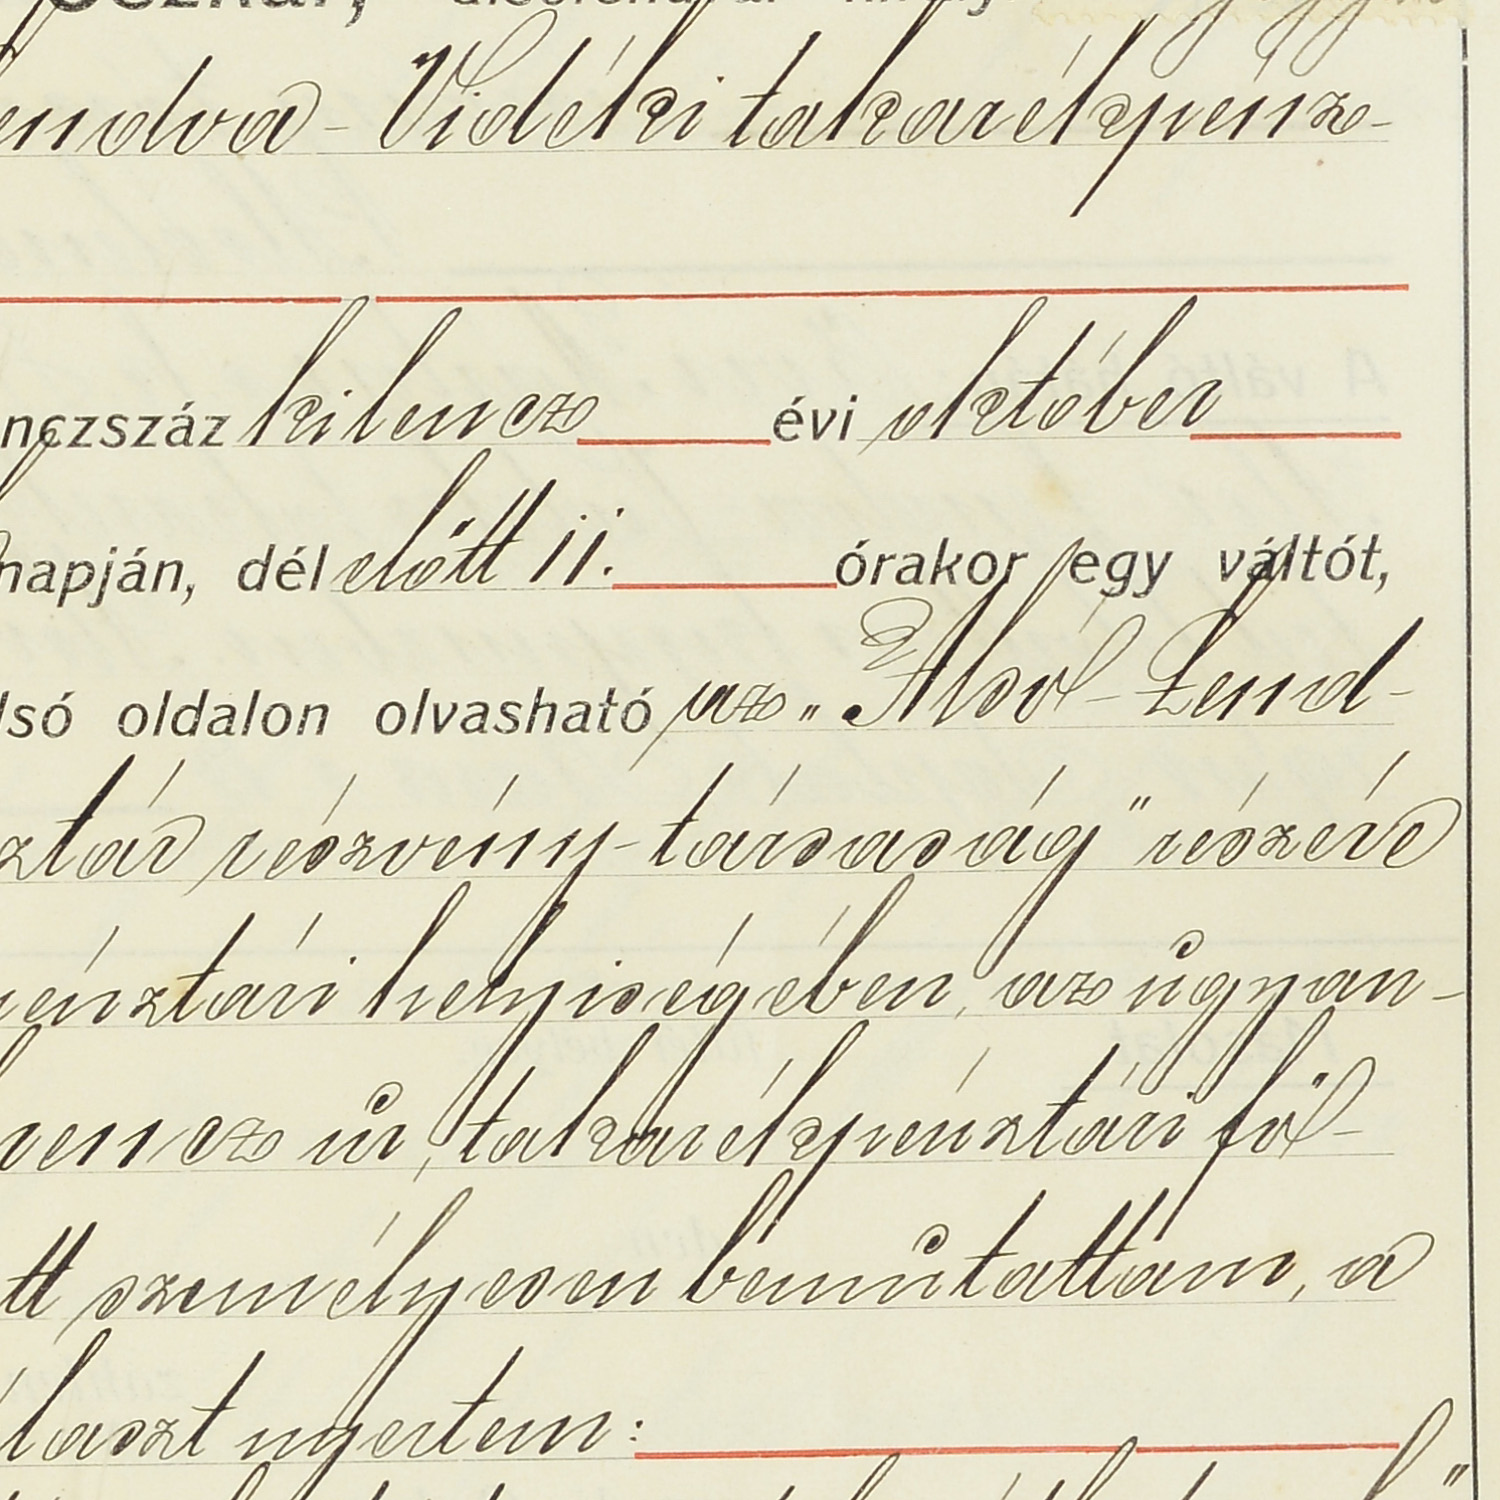 endva - Vidéki takarékpénz-
nczszáz kilencz évi október
napján, dél előtt 11. órakor egy váltót,
lsó oldalon olvasható az „Alsó-Lend-
ztár részvény-társaság" részére
énztári helyiségében, az ugyan-
rencz úr, takarékpénztári fő-
tt személyesen bemutattam, a
álaszt nyertem: